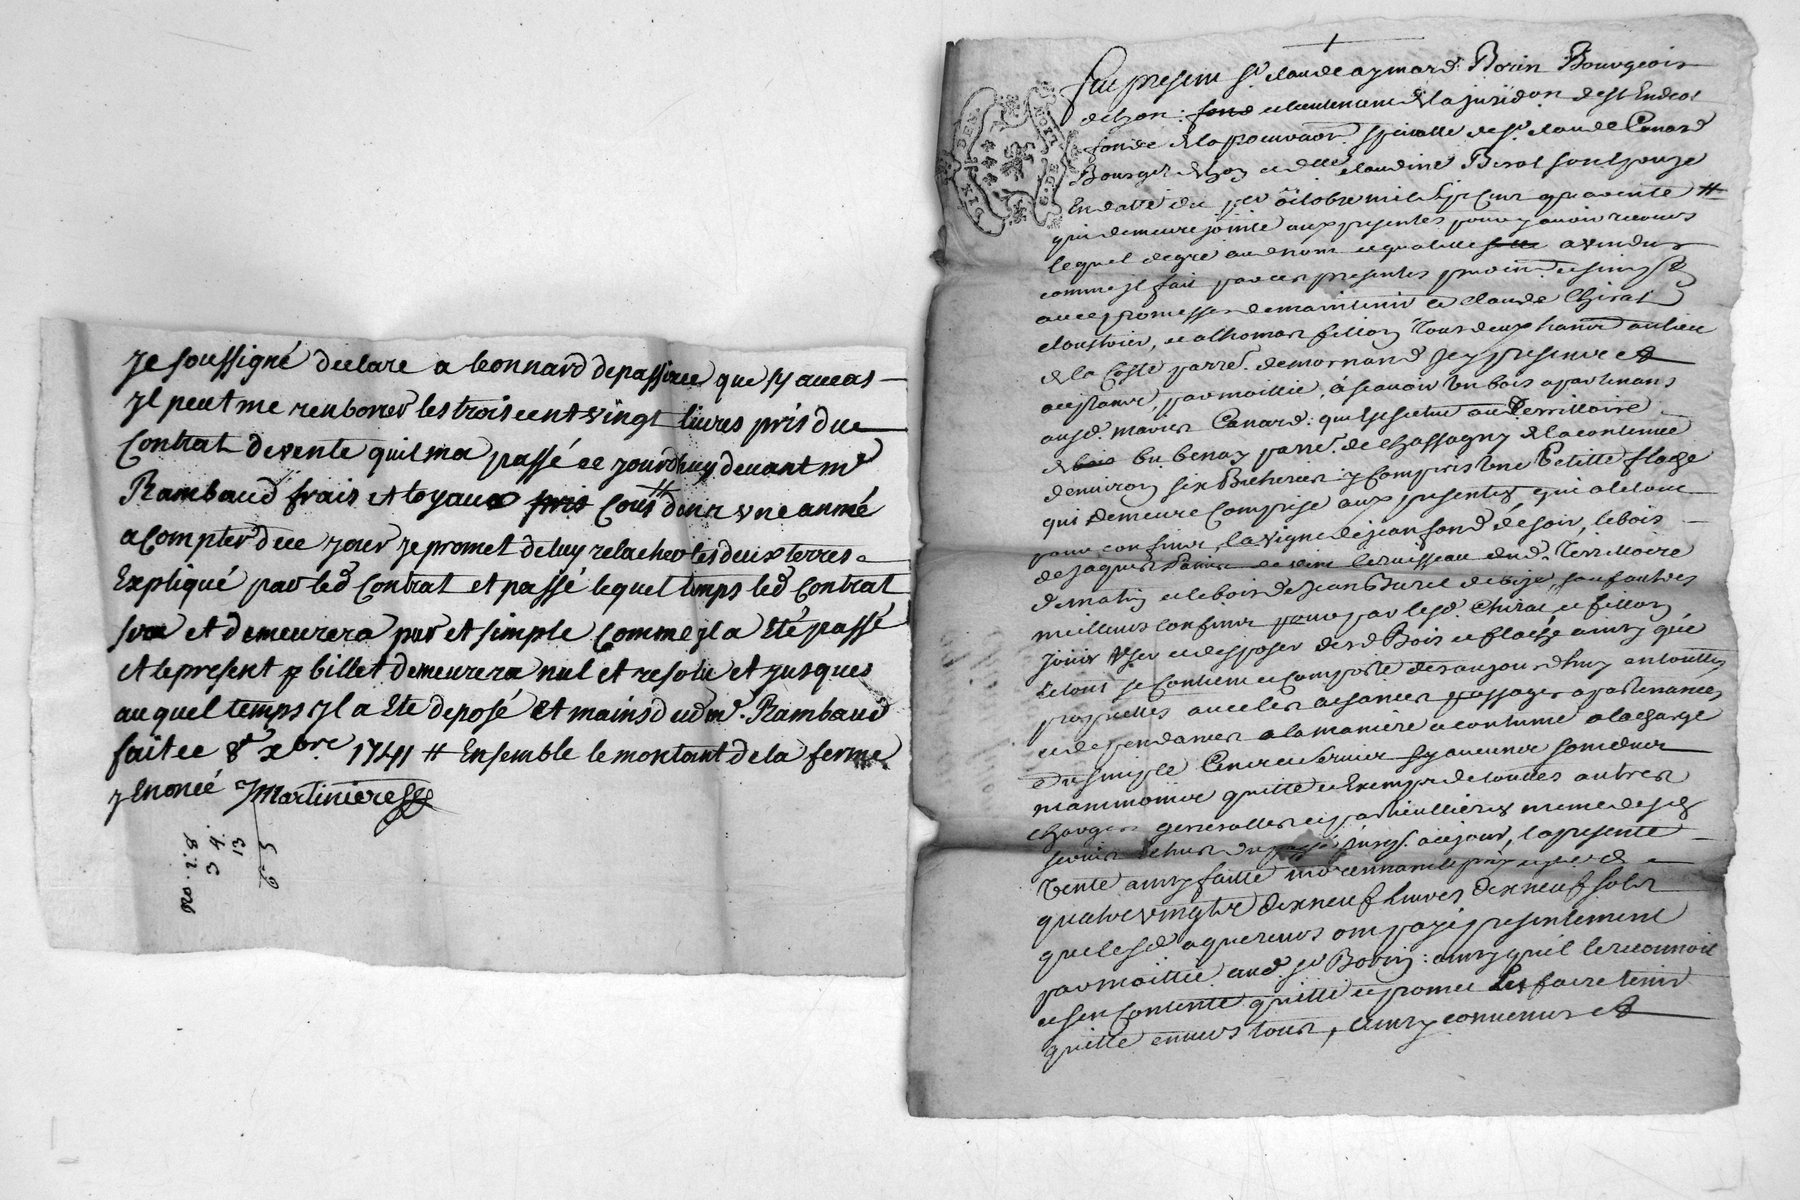 Je soussigné declare a Leonnard depassieu que sy aucas
Jl peut me renborser les trois cent vingt livres pris du
Contrat de vente quil ma passé ce jourdhuy devant mr
Rambaud frais et loyaux pris Couts # dans une année
a Compter de ce jour je promet de luy relacher les deux terres
Expliqué par led Contrat et passé lequel temps led Contrat
sera et demeurera pur et simple Comme jl a Eté passé
et le present p billet demeurera nul et resolu et jusques
au quel temps jl a Eté deposé Et mains dud mr. Rambaud
fait ce 8e xbre 1741 # Ensemble le montant de la ferme
y Enoncé JMartiniere
2: 8
3 4.
13
6 5
DIX DEN. G. DE LION
fut present sr. claude aymard Borin Bourgeois
de Lyon : fond et lieutenant de la juridon. de st Andeol
fondé de la procuraon. specialle de sr. claude Canard
Bourgs. de Lyon et dlle claudine Birat son Epouze
En datte du per octobre mil sept cent quarente #
qui demeure jointe aux presentes pour y avoir recours
lequel de gré aud nom et qualité a vendu
comme jl fait par ces presentes purem. et simp
avec promesse de maintenir a claude Chirat
cloustrier, et a thomas fillion tous deux habitt au lieu
de la Coste parre. de mornand jcy presents et
acceptants, par moittié, a scavoir un bois apartenant
ausd. mariés Canard : qui est scitué au Territoire
de bois du benay parre. de chassagny de la contenue
d'environ six Bicherées y compris une Petitte place
qui demeure comprise aux presentes, qui a le tout
pour confins, la vigne de jean fond de soir, le bois
de jaques de vent le ruisseau dud. Territoire
de matin et le bois de jean Burel de bize, sauf autres
meilleurs confins pour par lesd Chirat et fillion
jouir User et disposer desd Bois et place ainsy que
le tout se contient et comporte des aujourdhuy en touttes
proprietés avec les aysances passages apartenances
et dependances a la maniere accoutumé a la charge
du simple Cens et servis sy aucuns sont deus
neanmoins quitte et Exempt de touttes autres
charges generalles et particullieres meme desd
servis Echus du passé jusqs. a ce jour, la presente
Vente ainsy faitte moyennant le prix et somme de
quatre vingts dixneuf Livres dixneuf sols
que lesd aquereurs ont payé presentement
par moittié aud. sr Borin : ainsy quil le reconnoit
et s'en contente quitte et promet les faire tenir
quitte envers tous, ainsy convenus et